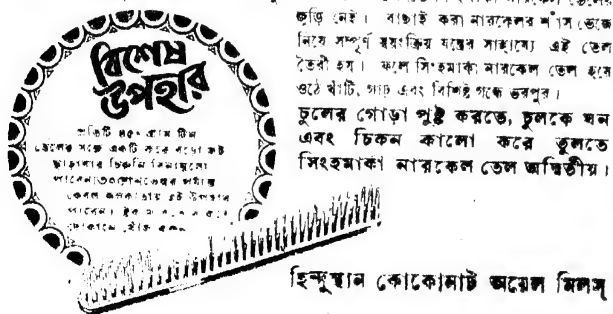 বিশেষ
উপহার
প্রতিটি ৪৫০ গ্রাম টিন
তেলের সঙ্গে একটি করে বড়ো জট
ছাড়াবার চিরুনি বিনামূল্যে
পাবেন।
কেবল এই উপহার
পাবেন।
দোকানে খোঁজ করুন
নারকেল তেলের
জুড়ি নেই। বাছাই করা নারকেলের শাঁস ভেজে
নিয়ে সম্পূর্ণ স্বয়ংক্রিয় যন্ত্রের সাহায্যে এই তেল
তৈরী হয়। ফলে সিংহমার্কা নারকেল তেল হয়ে
ওঠে খাঁটি, গাঢ় এবং বিশিষ্ট গন্ধে ভরপুর।
চুলের গোড়া পুষ্ট করতে, চুলকে ঘন
এবং চিকন কালো করে তুলতে
সিংহমার্কা নারকেল তেল অদ্বিতীয়।
হিন্দুস্থান কোকোনাট অয়েল মিলস্